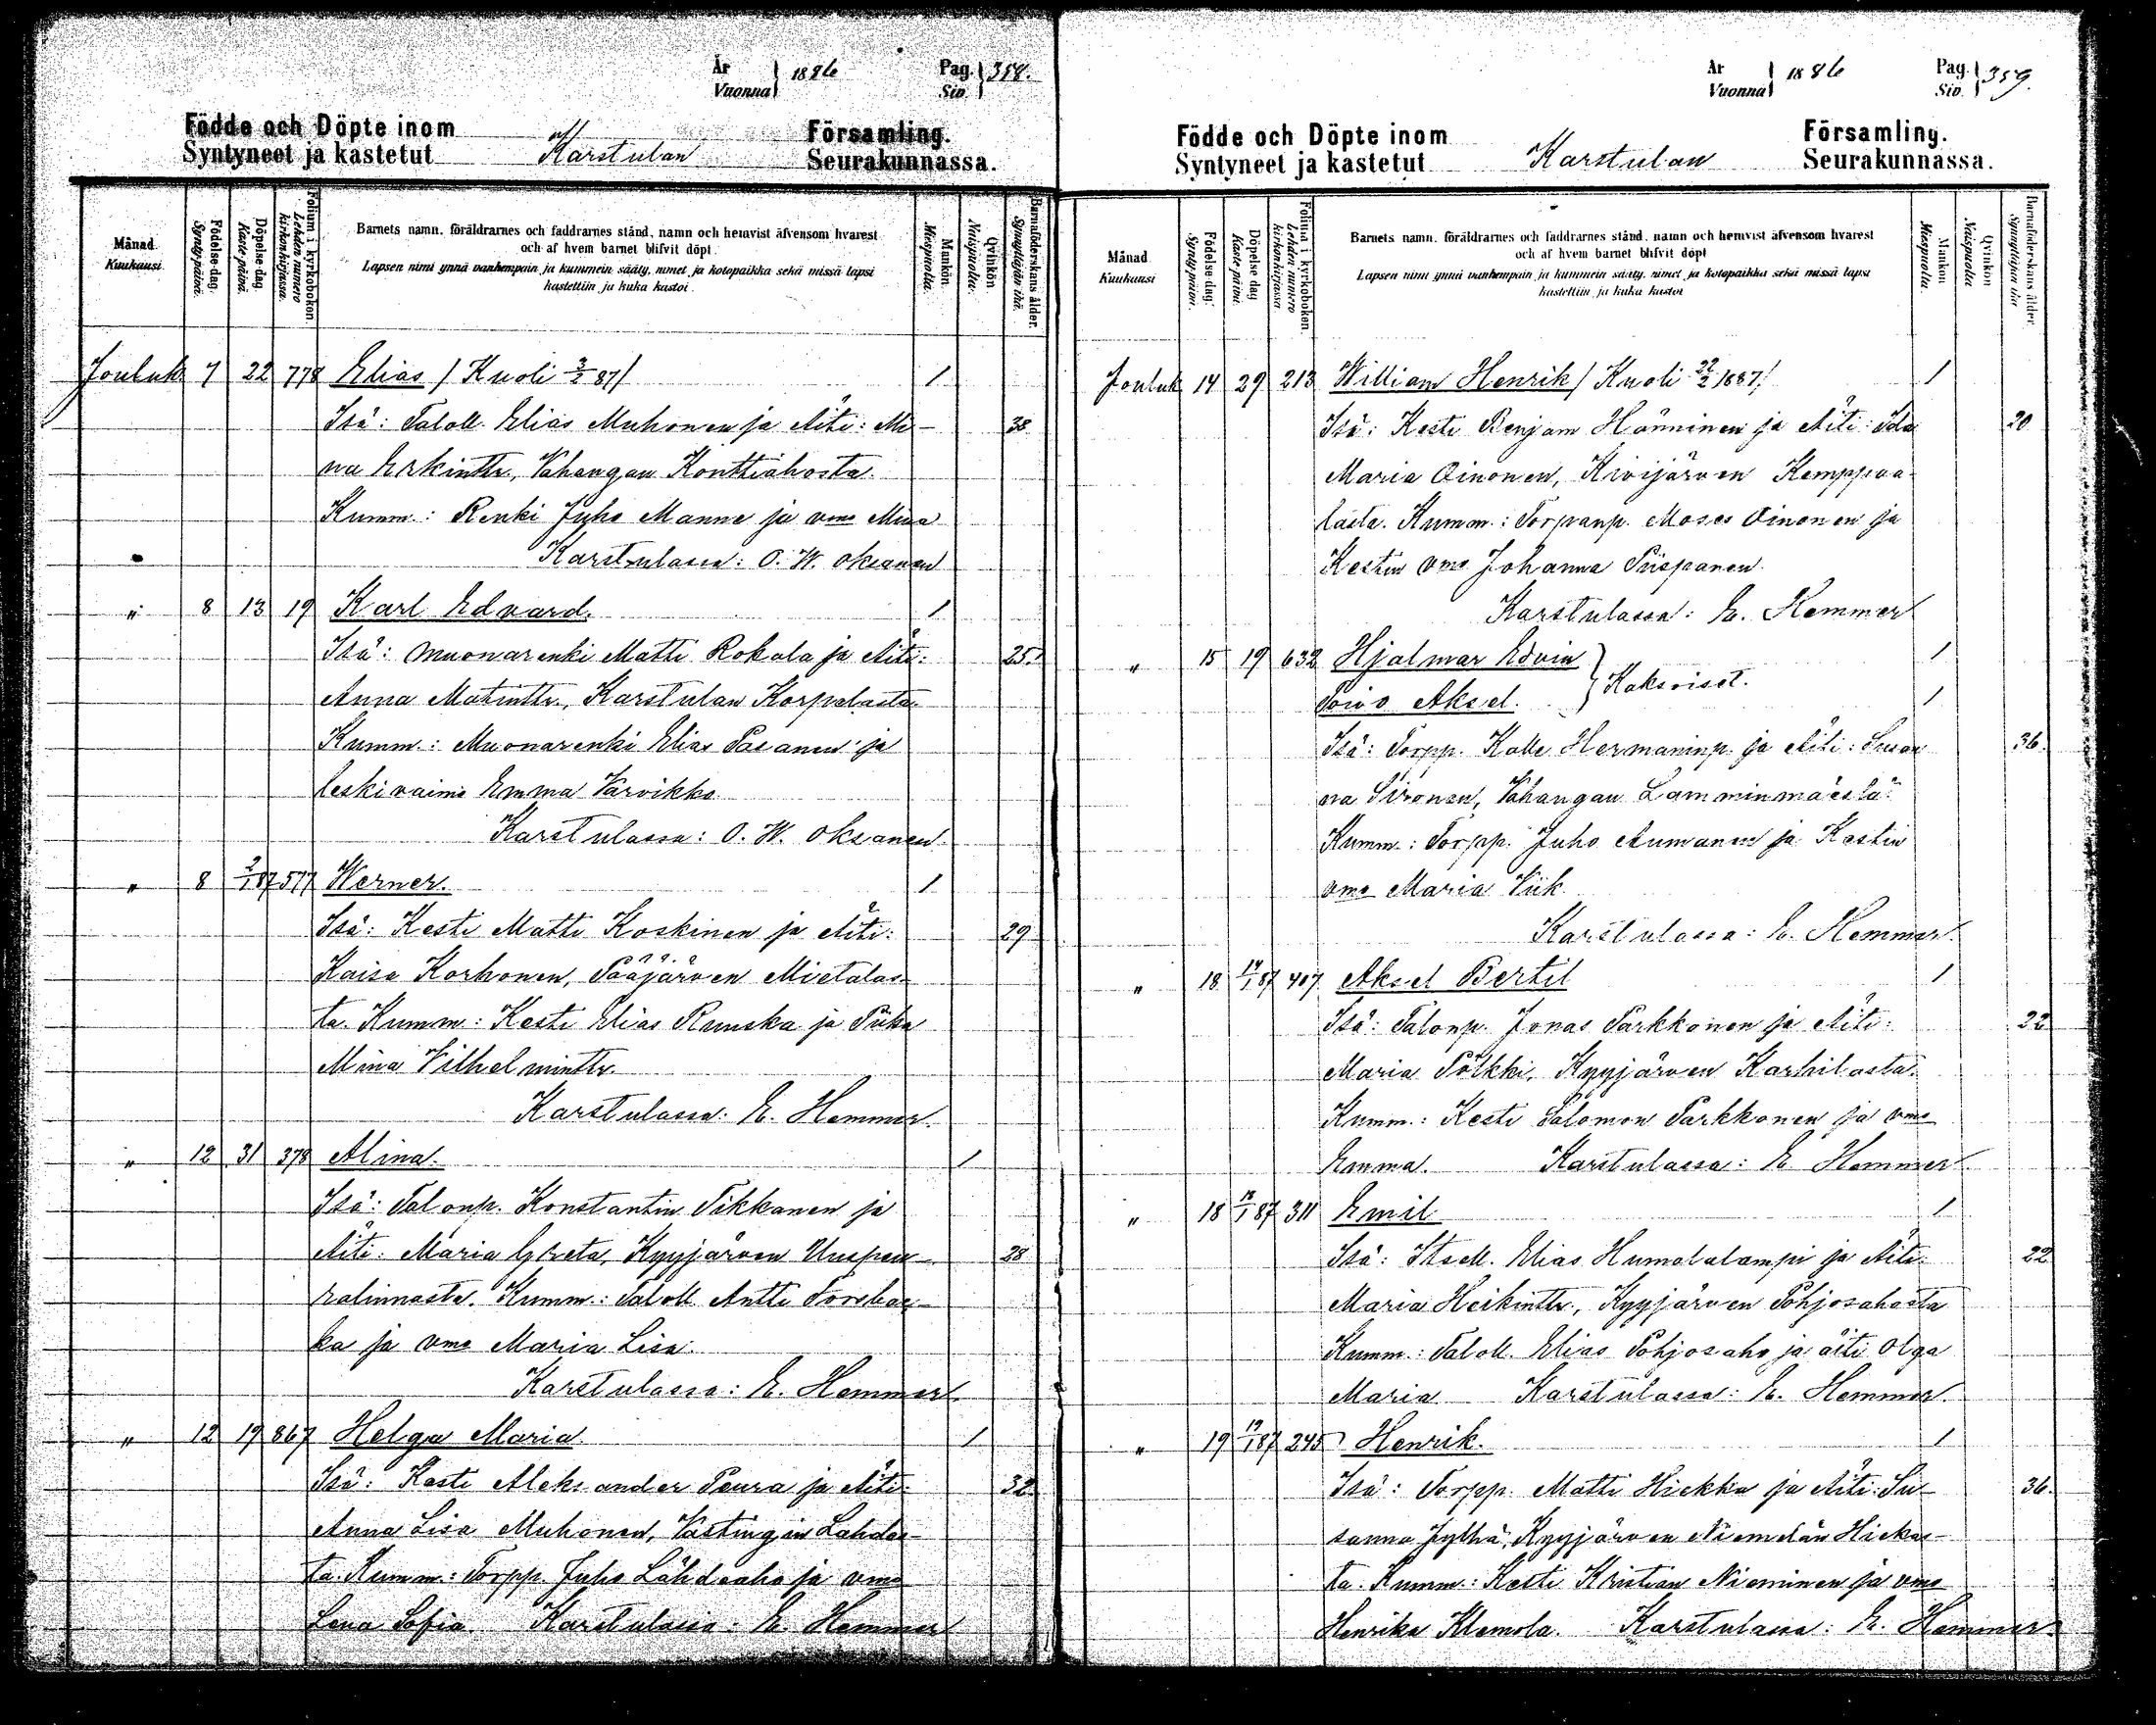 År
Vuonna 1886
Pag.
Siv. 358.
Födde och Döpte inom
Syntyneet ja kastetut Karstulan
Församling.
Seurakunnassa.
Månad
Kuukausi
Födelse dag.
Synty-päivä.
Döpelse dag.
Kaste-päivä.
Folium i kyrkoboken.
Lehden numero kirkonkirjassa.
Barnets namn, föräldrarnes och faddrarnes stånd, namn och hemvist äfvensom hvarest
och af hvem barnet blifvit döpt
Lapsen nimi ynnä vanhempain ja kummein sääty, nimet ja kotopaikka sekä missä lapsi
kastettiin ja kuka kastoi.
Mankön.
Miespuolia.
Qvinkön
Naispuolia.
Barnaföderskans ålder.
Synnyttäjän ikä.
Jouluk 7 22 778 Elias / Kuoli 3/2 87/ 1
Isä: Taloll. Elias Muhonen ja Äiti: Mi- 38
na Erkintr., Vahangan Konttiahosta.
Kumm.: Renki Juho Manne ja vmo Mina
Karstulassa: O. W. Oksanen
" 8 13 19 Karl Edvard. 1
Isä: Muonarenki Matti Rokala ja Äiti: 25.
Anna Matintr., Karstulan Korpalasta.
Kumm.: Muonarenki Elias Pasanen ja
leskivaimo Emma Varvikko
Karstulassa: O. W. Oksanen.
" 8 2/1 87 577 Werner. 1
Isä: Kesti Matti Koskinen ja Äiti: 29
Kaisa Korhonen, Pääjärven Mietalas-
ta. Kumm: Kesti Elias Runska ja Piika
Mina Vilhelmintr.
Karstulassa: E. Hemmer.
" 12 31 378 Alina. 1
Isä: Talonp. Konstantin Tikkanen ja
Äiti: Maria Greta, Kyyjärven Uuspen- 28
kalinnasta. Kumm.: Taloll Antti
ka ja vmo Maria Lisa.
Karstulassa: E. Hemmer
" 12 19 867 Helga Maria. 1
Isä: Kesti Aleksander Peura ja Äiti: 32
Anna Lisa Muhonen, Vastingin Lahdes-
ta. Kumm.: Torpp. Juho Lähdeaho ja vmo
Lena Sofia Karstulassa: E. Hemmer
År
Vuonna 1886
Pag.
Siv. 359.
Födde och Döpte inom
Syntyneet ja kastetut Karstulan
Församling.
Seurakunnassa.
Månad
Kuukausi
Födelse dag.
Synty-päivä.
Döpelse dag
Kaste-päivä.
Folium i kyrkoboken.
Lehden numero kirkonkirjassa
Barnets namn, föräldrarnes och faddrarnes stånd, namn och hemvist äfvensom hvarest
och af hvem barnet blifvit döpt
Lapsen nimi ynnä vanhempain ja kummein sääty, nimet ja kotopaikka sekä missä lapsi
kastettiin ja kuka kastoi
Mankön
Miespuolia.
Qvinkön
Naispuolia
Barnaföderskans ålder.
Synnyttäjän ikä
Jouluk 14 29 213 William Henrik / Kuoli 22/2 1887/ 1
Isä: Kesti Benjam Hänninen ja Äiti: Ida 20
Maria Oinonen, Kivijärven Kemppaa-
lasta. Kumm.: Torpanp. Moses Oinonen ja
Kestin vmo Johanna Piispanen.
Karstulassa: E. Hemmer
" 15 19 632 Hjalmar Edvin 1
Toivo Aksel. } Kaksoiset. 1
Isä: Torpp. Kalle Hermaninp. ja Äiti: Susan 36.
na Sironen, Vahangan Lamminmäestä.
Kumm.: Torpp. Juho Aumanen ja Kestin
vmo Maria Viik
Karstulassa: E. Hemmer.
" 18 14/1 87 407 Aksel Bertil 1
Isä: Talonp. Jonas Parkkonen ja Äiti: 22
Maria Pölkki, Kyyjärven Karhilasta.
Kumm.: Kesti Salomon Parkkonen ja vmo
Emma. Karstulassa: E. Hemmer
" 18 18/1 87 311 Emil 1
Isä: Itsell. Elias Humalalampi ja Äiti: 22
Maria Heikintr., Kyyjärven Pohjosahosta
Kumm.: Taloll. Elias Pohjosaho ja äiti Olga
Maria Karstulassa: E. Hemmer.
" 19 19/1 87 245 Henrik. 1
Isä: Torpp. Matti Hiekka ja Äiti: Su- 36.
sanna Jylhä, Kyyjärven Niemelän Hiekas-
ta. Kumm.: Kesti Kristian Nieminen ja vmo
Henrika Klemola. Karstulassa: E. Hemmer.